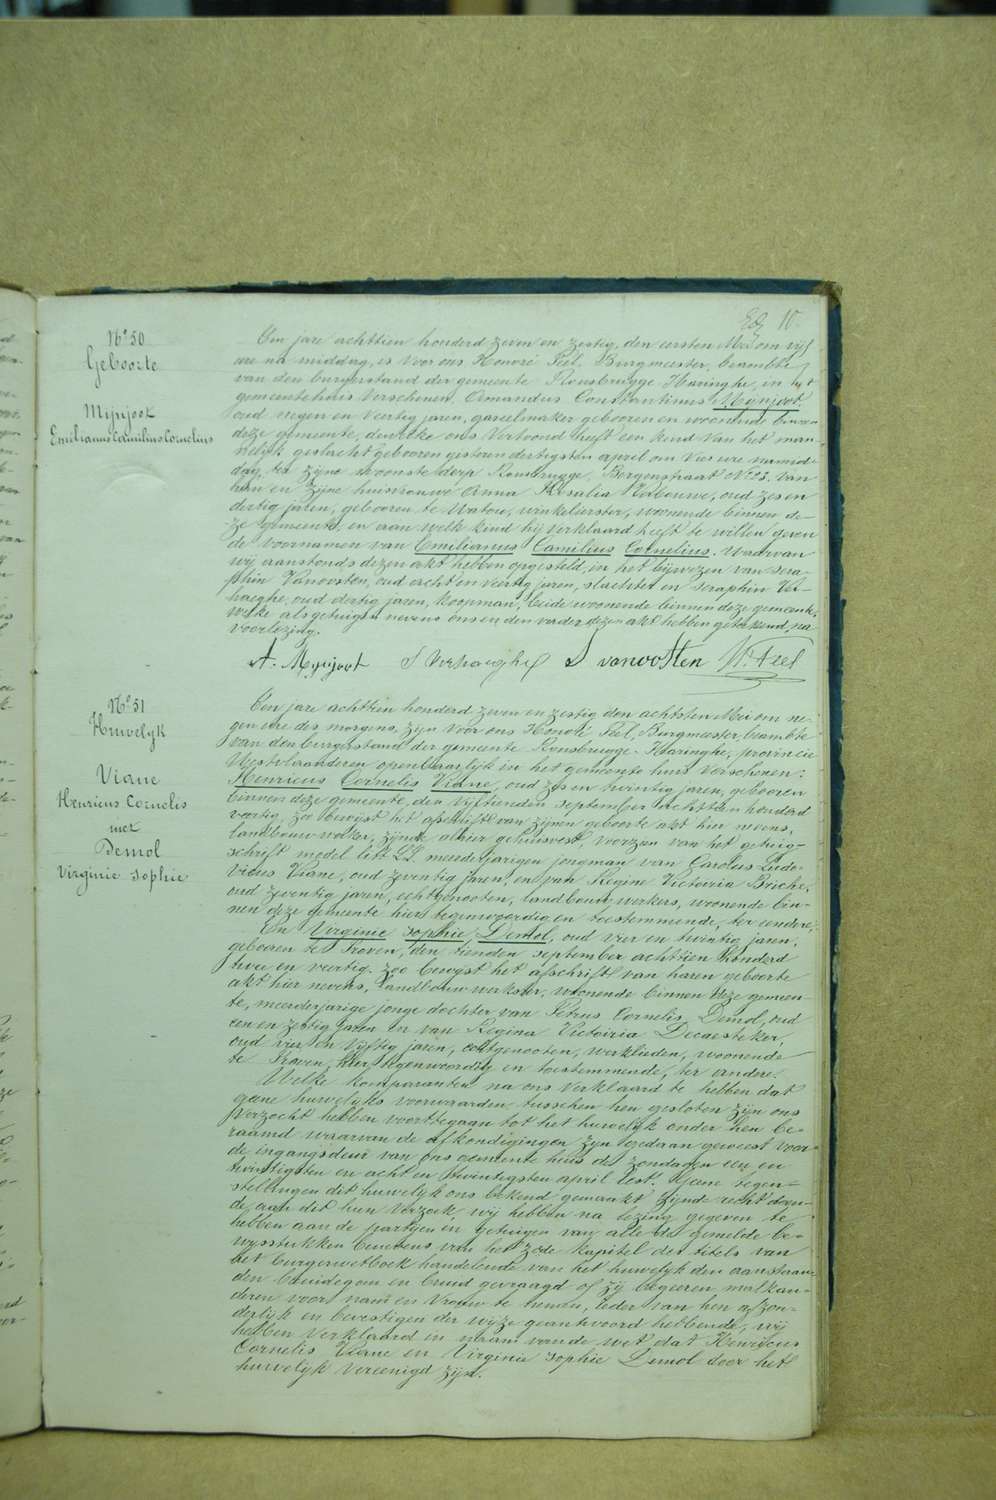 10.
N° 50
Geboorte
Mijnjoot
Emilianus Camilius Cornelius
Een jare achttien honderd zeven en zestig, den eersten Mei om vijf
ure na middag, is voor ons Honoré Feel, Burgmeester, beambte
van den burgerstand der gemeente Rousbrugge Haringhe, in het
gemeentehuis verschenen, Amandus Constantinus Mynjoot
oud negen en veertig jaren, gareelmaker geboren en woonende binnen
deze gemeente, denwelke ons vertoond heeft een kind van het man-
nelijk geslacht geboren gisteren dertigsten april om vier ure namid-
dag, ter zijne woonstede dorp Rousbrugge, Bergenstraat N° 23. van
hem en zijne huisvrouwe Anna Rosalia oud zes en
dertig jaren, geboren te Watou, winkelierster, woonende binnen de-
ze gemeente, en aan welk kind hij verklaard heeft te willen geven
de voornamen van Emilianus Camilius Cornelius. Waarvan
wij aanstonds dezen akt hebben opgesteld, in het bijwezen van Sera-
phin Vanoosten, oud acht en veertig jaren, slachter en Seraphin Ver-
haeghe, oud dertig jaren, koopman, beide woonende binnen deze gemeente,
welke als getuigen nevens ons en den vader dezen akt hebben geteekend, na
voorlezing.
A. Mynjoot S Verhaeghe S vanoosten H. Feel
N° 51
Huwelyk
Viane
Henricus Cornelis
met
Demol
Virginie Sophie
Een jare achttien honderd zeven en zestig den achtsten Mei om ne-
gen ure des morgens, zijn voor ons Honoré Feel, Burgmeester, beambte
van den burgerstand der gemeente Rousbrugge-Haringhe, provincie
Westvlaanderen openbaarlijk in het gemeente huis verschenen:
Henricus Cornelis Viane, oud zes en twintig jaren, geboren
binnen deze gemeente, den vijftienden september achttien honderd
veertig, zoo bewijst het afschrift van zijnen geboorte akt hier nevens,
landbouwwerker, zijnde alhier gehuisvest, voorzien van het getuig-
schrift model litt LL. meerderjarigen jongman van Carolus Ludo-
vicus Viane, oud zeventig jaren, en van Regine Victoria Briche,
oud zeventig jaren, echtgenooten, landbouwwerkers, woonende bin-
nen deze gemeente hier tegenwoordig en toestemmende, ter eendere;
En Virginie Sophie Demol, oud vier en twintig jaren,
geboren te Proven, den tienden september achttien honderd
twee en veertig. zoo bewijst het afschrift van haren geboorte
akt hier nevens, landbouwwerkster, woonende binnen deze gemeen-
te, meerderjarige jonge dochter van Petrus Cornelis Demol, oud
een en zestig jaren en van Regina Victoria Decaesteker,
oud vier en vijftig jaren, echtgenooten, werklieden, woonende
te Proven, hier tegenwoordig en toestemmende, ter andere.
Welke komparanten na ons verklaard te hebben dat
geene huwelijks voorwaarden tusschen hen gesloten zijn ons
verzocht hebben voorttegaan tot het huwelijk onder hen be-
raamd waarvan de afkondigingen zijn gedaan geweest voor
de ingangsdeur van ons gemeente huis de zondagen een en
twintigsten en acht en twintigsten april lest. Geene tegen-
stellingen dit huwelijk ons bekend gemaakt zijnde recht doen-
de aan dit hun verzoek, wij hebben na lezing gegeven te
hebben aan de partijen en getuigen van alle de gemelde be-
wysstukken benevens van het zesde kapittel des titels van
het burgerwetboek handelende van het huwelijk den aanstaan-
den bruidegom en bruid gevraagd of zij begeeren malkan-
deren voor man en vrouw te nemen, ieder van hen afzon-
derlijk en bevestigen der wijze geantwoord hebbende, wij
hebben verklaard in naam van de wet dat Henricus
Cornelis Viane en Virginie Sophie Demol door het
huwelijk vereenigd zijn.